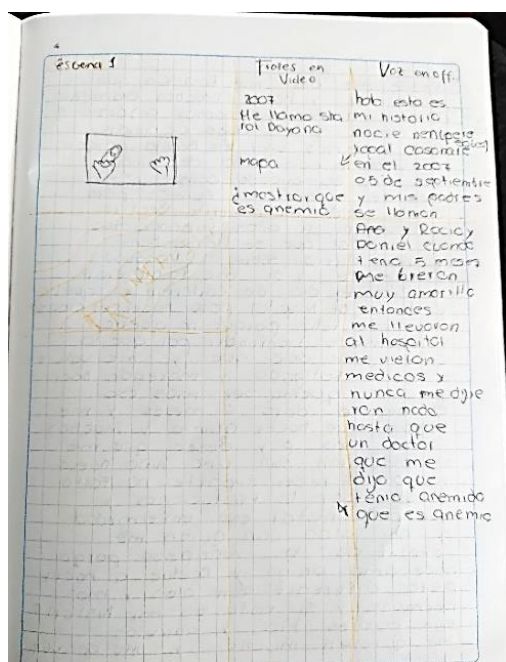 escena 1
Titoles en
Video
2007
Me llamo sha
rol Dayana
mapa
¿mostrar que
es anemic
Voz en off.
hola esta es
mi historia
nacie
yopal casanare
en el 2007
05 de septiembre
y mis padres
se llaman
Ana y Rocio y
Daniel cuando
tenia 5 meses
me
muy amarilla
entonces
me llevaron
al hospital
me vieron
medicos y
nunca me dije
ron nada
hasta que
un doctor
que me
dijo que
tenia anemida
que es anemic